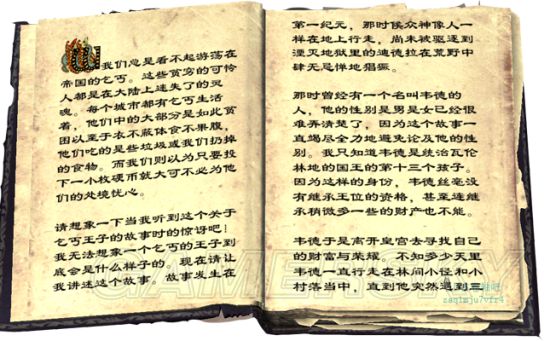 我们总是看不起游荡在
帝国的乞丐。这些贫穷的可怜
人都是在大陆上迷失了的灵
魂。每个城市都有乞丐生活
着,他们中的大部分是如此贫
困以至于衣不蔽体食不果腹,
他们吃的是些垃圾或我们扔掉
的食物。而我们则以为只要投
下一小枚硬币就大可不必为他
们的处境忧心。
请想象一下当我听到这个关于
乞丐王子的故事时的惊讶吧!
我无法想象一个乞丐的王子到
底会是什么样子的。现在请让
我讲述这个故事。故事发生在
第一纪元,那时侯众神像人一
样在地上行走,尚未被驱逐到
湮灭地狱里的迪德拉在荒野中
肆无忌惮地猖獗。
那时曾经有一个名叫韦德的
人,他的性别是男是女已经很
难弄清楚了,因为这个故事一
直竭尽全力地避免论及他的性
别。我只知道韦德是统治瓦伦
林地的国王的第十三个孩子。
因为这样的身份,韦德丝毫没
有继承王位的资格,甚至连继
承稍微多一些的财产也不能。
韦德于是离开皇宫去寻找自己
的财富与荣耀,不知多少天里
韦德一直行走在林间小径和小
村落当中,直到他突然遇到三
GAMERSKY
zaqimju7vfr4